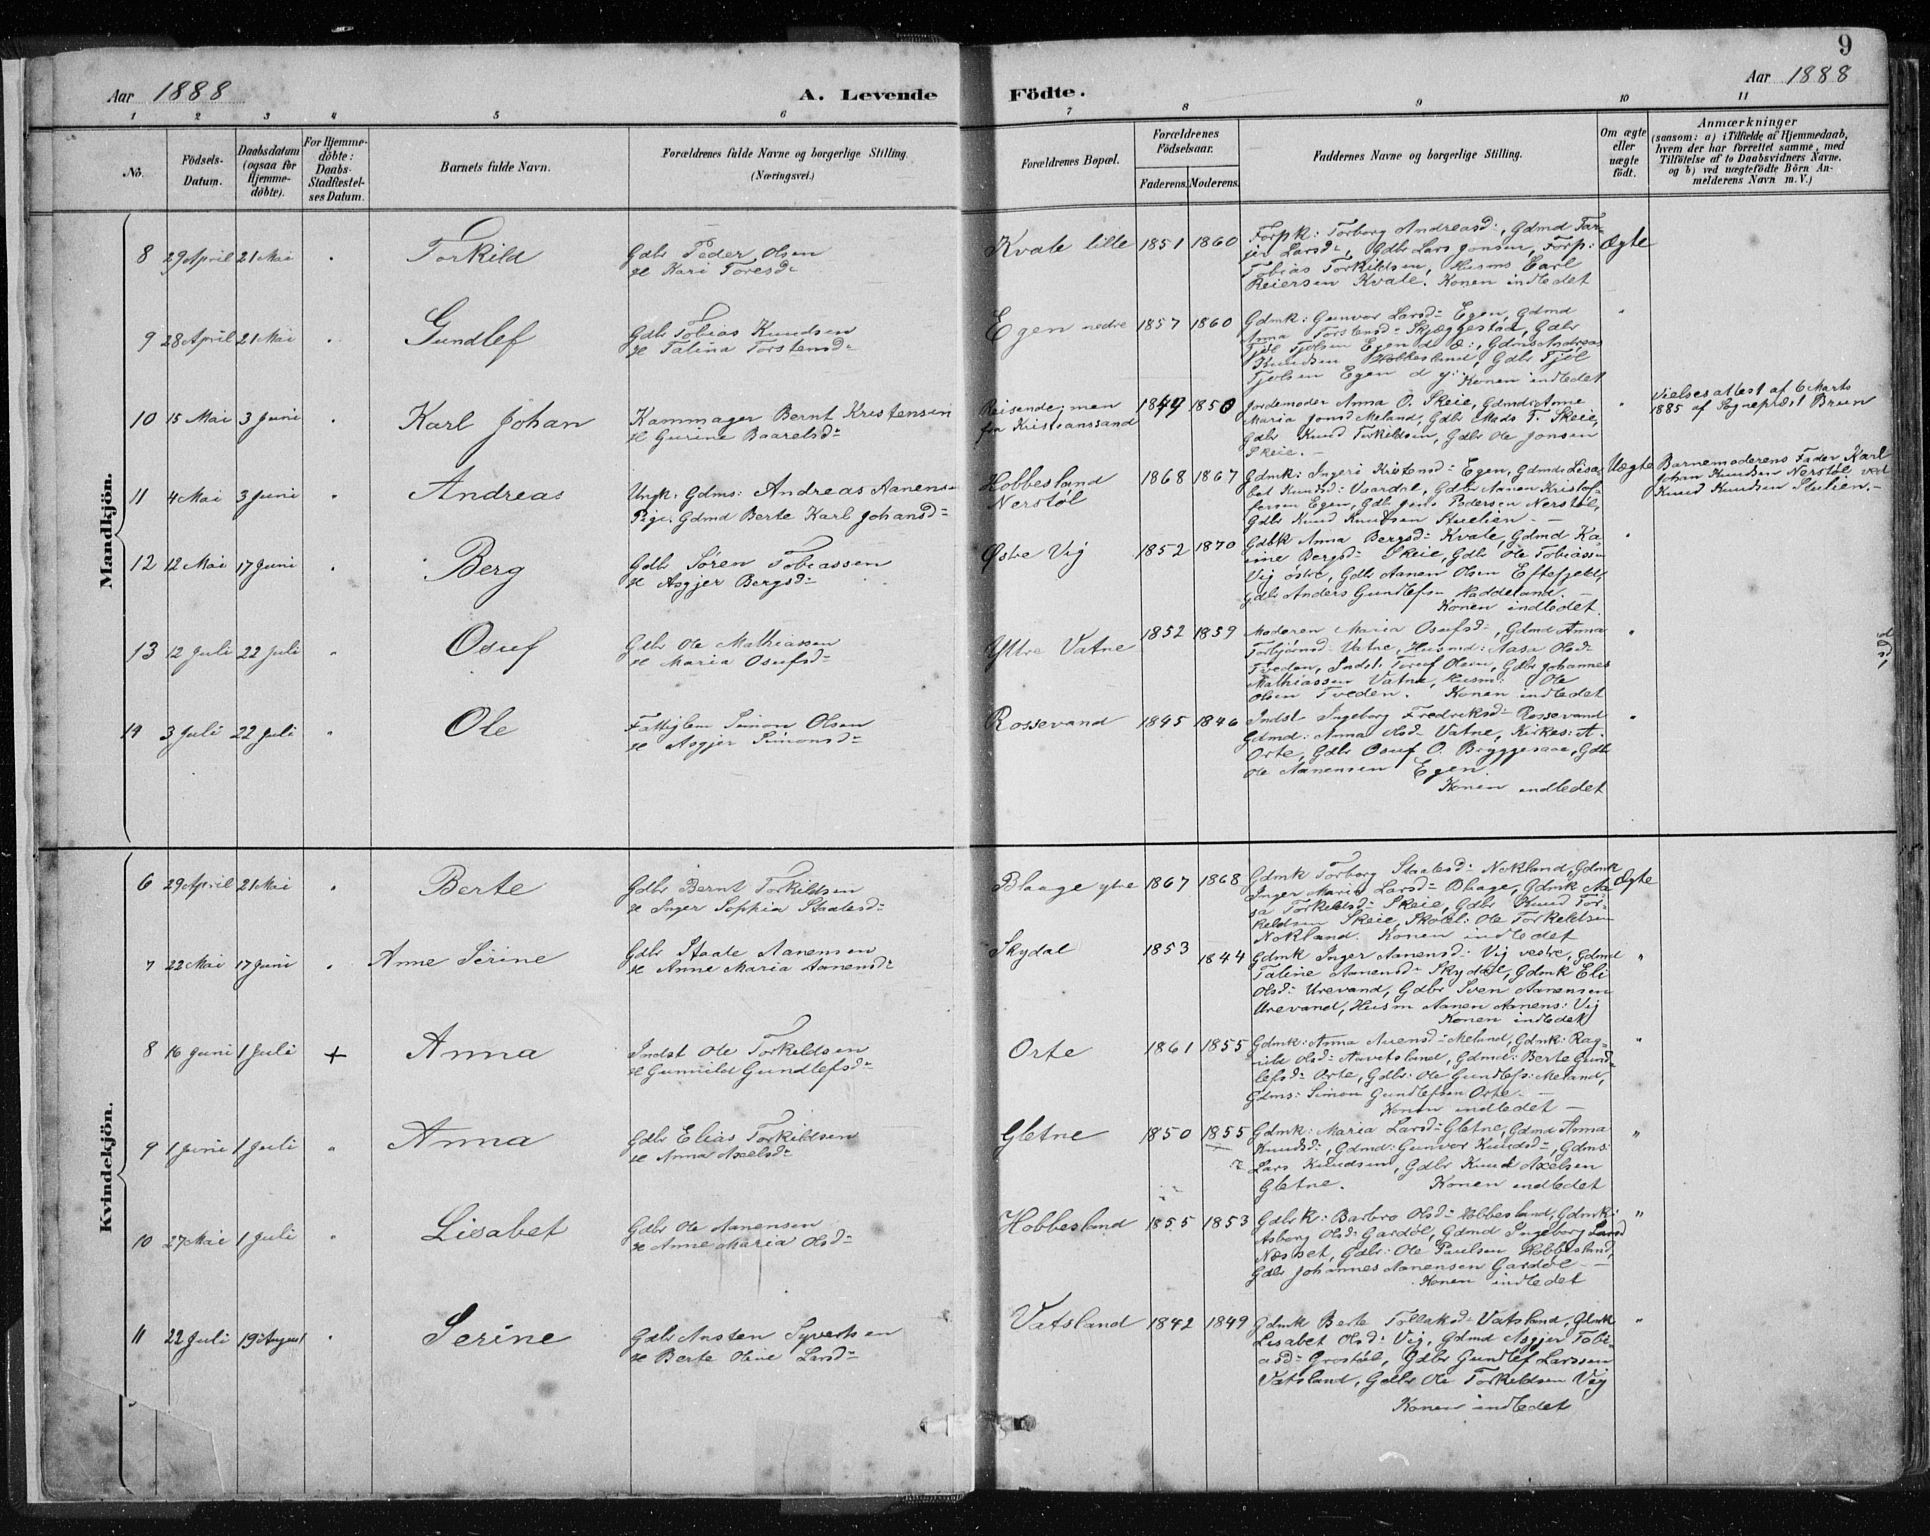 9
Aar 1888
A. Levende Födte.
Aar 1888
1 2 3 4 5 6 7 8 9 10 11
No.
Födsels-Datum.
Daabsdatum (ogsaa for Hjemme-döbte).
For Hjemme-döbte: Daabs-Stadfæstel-ses Datum.
Barnets fulde Navn.
Forældrenes fulde Navne og borgerlige Stilling.
(Næringsvei.)
Forældrenes Bopæl.
Forældrenes Födselsaar.
Faderens. Moderens.
Faddernes Navne og borgerlige Stilling.
Om ægte eller uægte födt.
Anmærkninger
(saasom: a) i Tilfælde af Hjemmedaab,
hvem der har forrettet samme, med
Tilföielse af to Daabsvidners Navne.
og b) ved uægtefödte Börn An-
melderens Navn m.V.)
Mandkjön.
8 29 April 21 Mai " Torkild
Gdbr Peder Olsen
H Kari Toresd:
Kvale lille 1851 1860
Forpk: Torborg Andreasd:, Gdmd Tar-
jer Larsd:, Gdbr Lars Jonsen, Forp:
Tobias Torkildsen, Husms Carl
Reiersen Kvale. Konen indledet
Ægte
9 28 April 21 Mai " Gundlef
Gdbr Tobias Knudsen
H Talina Torstensd:
Egen nedre 1857 1860
Gdmk: Gunvor Larsd: Egen, Gdmd
Anna Torstensd: Skjæggestad, Gdbr
Tjøl Tjølsen Egen d æ:, Gdms Andreas
Knudsen Hobbesland, Gdbr Tjøl
Tjølsen Egen d y: Konen indledet
"
10 15 Mai 3 Juni " Karl Johan
Kammager Bernt Kristensen
H Gurine Baarelsd:
Reisende; men
fra Kristianssand
1849 1850
Jordemoder Anna O. Skeie, Gdmd: Anne
Maria Jonsd: Meland, Gdbr Mads T. Skeie,
Gdbr Knud Torkildsen, Gdbr Ole Jonsen
Skeie. -
"
Vielsesattest af 6 Marts
1885 af Sognepræst Bruun
11 4 Mai 3 Juni " Andreas
Ungk: Gdms: Andreas Aanensen
Pige: Gdmd Berte Karl Johansd:
Hobbesland
Nerstøl
1868 1867
Gdmk: Ingeri Kristensd: Egen, Gdmd: Lisa-
bet Knudsd: Vaardal, Gdbr Aanen Kristof-
fersen Egen, Gdbr Jens Pedersen Nerstøl,
Gdbr Knud Knudsen Stulien. -
Uægte
Barnemoderens Fader Karl
Johan Knudsen Nerstøl ved
Knud Knudsen Stulien. -
12 12 Mai 17 Juni " Berg
Gdbr Søren Tobiassen
H Asgjer Bergsd:
Østre Vig 1852 1870
Gdbk Anna Bergsd: Kvale, Gdmd Ka-
rine Bergsd: Skeie, Gdbr Ole Tobiassen
Vig østre, Gdbr Aanen Olsen Eftefjeld,
Gdbr Anders Gundlefsn Haddeland. -
Konen indledet.
"
13 12 Juli 22 Juli " Osuf
Gdbr Ole Mathiassen
H Maria Osufsd:
Yttre Vatne 1852 1859
Moderen Maria Osufsd:, Gdmd Anna
Torbjørnsd: Vatne, Husmd: Aasa Olsd:
Tveden, Indst: Toruf Olsen, Gdbr Johannes
Mathiassen Vatne, Husm: Ole
Olsen Tveden. Konen indledet
"
14 3 Juli 22 Juli " Ole
Fattiglem Simon Olsen
H Asgjer Simonsd:
Rossevand 1845 1846
Indst Ingeborg Fredriksd: Rossevand
Gdmd: Anna Olsd: Vatne, Kirkes: A.
Orte, Gdbr Osuf O. Bryggesaa, Gdbr
Ole Aanensen Egen
Konen indledet
"
Kvindekjön.
6 29 April 21 Mai " Berte
Gdbr Bernt Torkildsen
H Inger Sophia Staalesd:
Blaage ytre 1867 1868
Gdmk Torborg Staalesd: Nokland, Gdmk
Inger Maria Larsd: Blaage, Gdmk Aa-
sa Torkildsd: Skeie, Gdbr Knud Tor-
kildsen Skeie, Skoll: Ole Torkeldsen
Nokland. Konen indledet
Ægte
7 22 Mai 17 Juni " Anne Serine
Gdbr Staale Aanensen
H Anne Maria Aanensd:
Skydal 1853 1844
Gdmk Inger Aanensd: Vig vestre, Gdmd
Taline Aanensd: Skydal, Gdmk Eli
Olsd: Urevand, Gdbr Sven Aanensen
Urevand, Husm Aanen Aanens: Vig
Konen indledet
"
8 16 Juni 1 Juli + Anna
Indst Ole Torkeldsen
H Gunuld Gundlefsd:
Orte 1861 1855
Gdmk: Anna Auensd: Meland, Gdmk: Rag-
nild Olsd: Aavetsland, Gdmd: Berte Gund-
lefsd: Orte, Gdbr: Ole Gundlefs: Meland,
Gdms: Simon Gundlefsen Orte. -
Konen indledet -
"
9 1 Juni 1 Juli " Anna
Gdbr Elias Torkildsen
H Anna Axelsd:
Gletne 1850 1855
Gdmk: Maria Larsd: Gletne, Gdmd Anna
Knudsd:, Gdmd: Gunvor Knudsd:, Gdms:
Lars Knudsen, Gdbr Knud Axelsen
Gletne. Konen indledet
"
10 27 Mai 1 Juli " Lisabet
Gdbr Ole Aanensen
H Anne Maria Olsd:
Hobbesland 1855 1853
Gdbrk: Barbro Olsd: Hobbesland, Gdmk:
Asborg Olsd: Gardøl, Gdmd Ingeborg Larsd
Næsset, Gdbr: Ole Paulsen Hobbesland,
Gdbr Johannes Aanensen Gardøl. -
Konen indledet
"
11 22 Juli 19 August " Serine
Gdbr Ansten Syvertsen
H Berte Oline Larsd:
Vatsland 1842 1849
Gdmk Berte Tollaksd: Vatsland, Gdmk
Lisabet Olsd: Vig, Gdmd Asgjer Tobi-
asd: Grostøl, Gdbr Gundlef Larssen
Vatsland, Gdbr Ole Torkeldsen Vig
Konen indledet
"